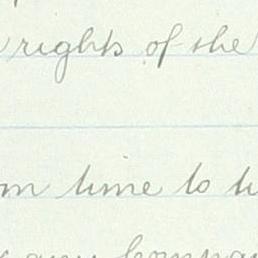 rights of the
m time to ti
any compan